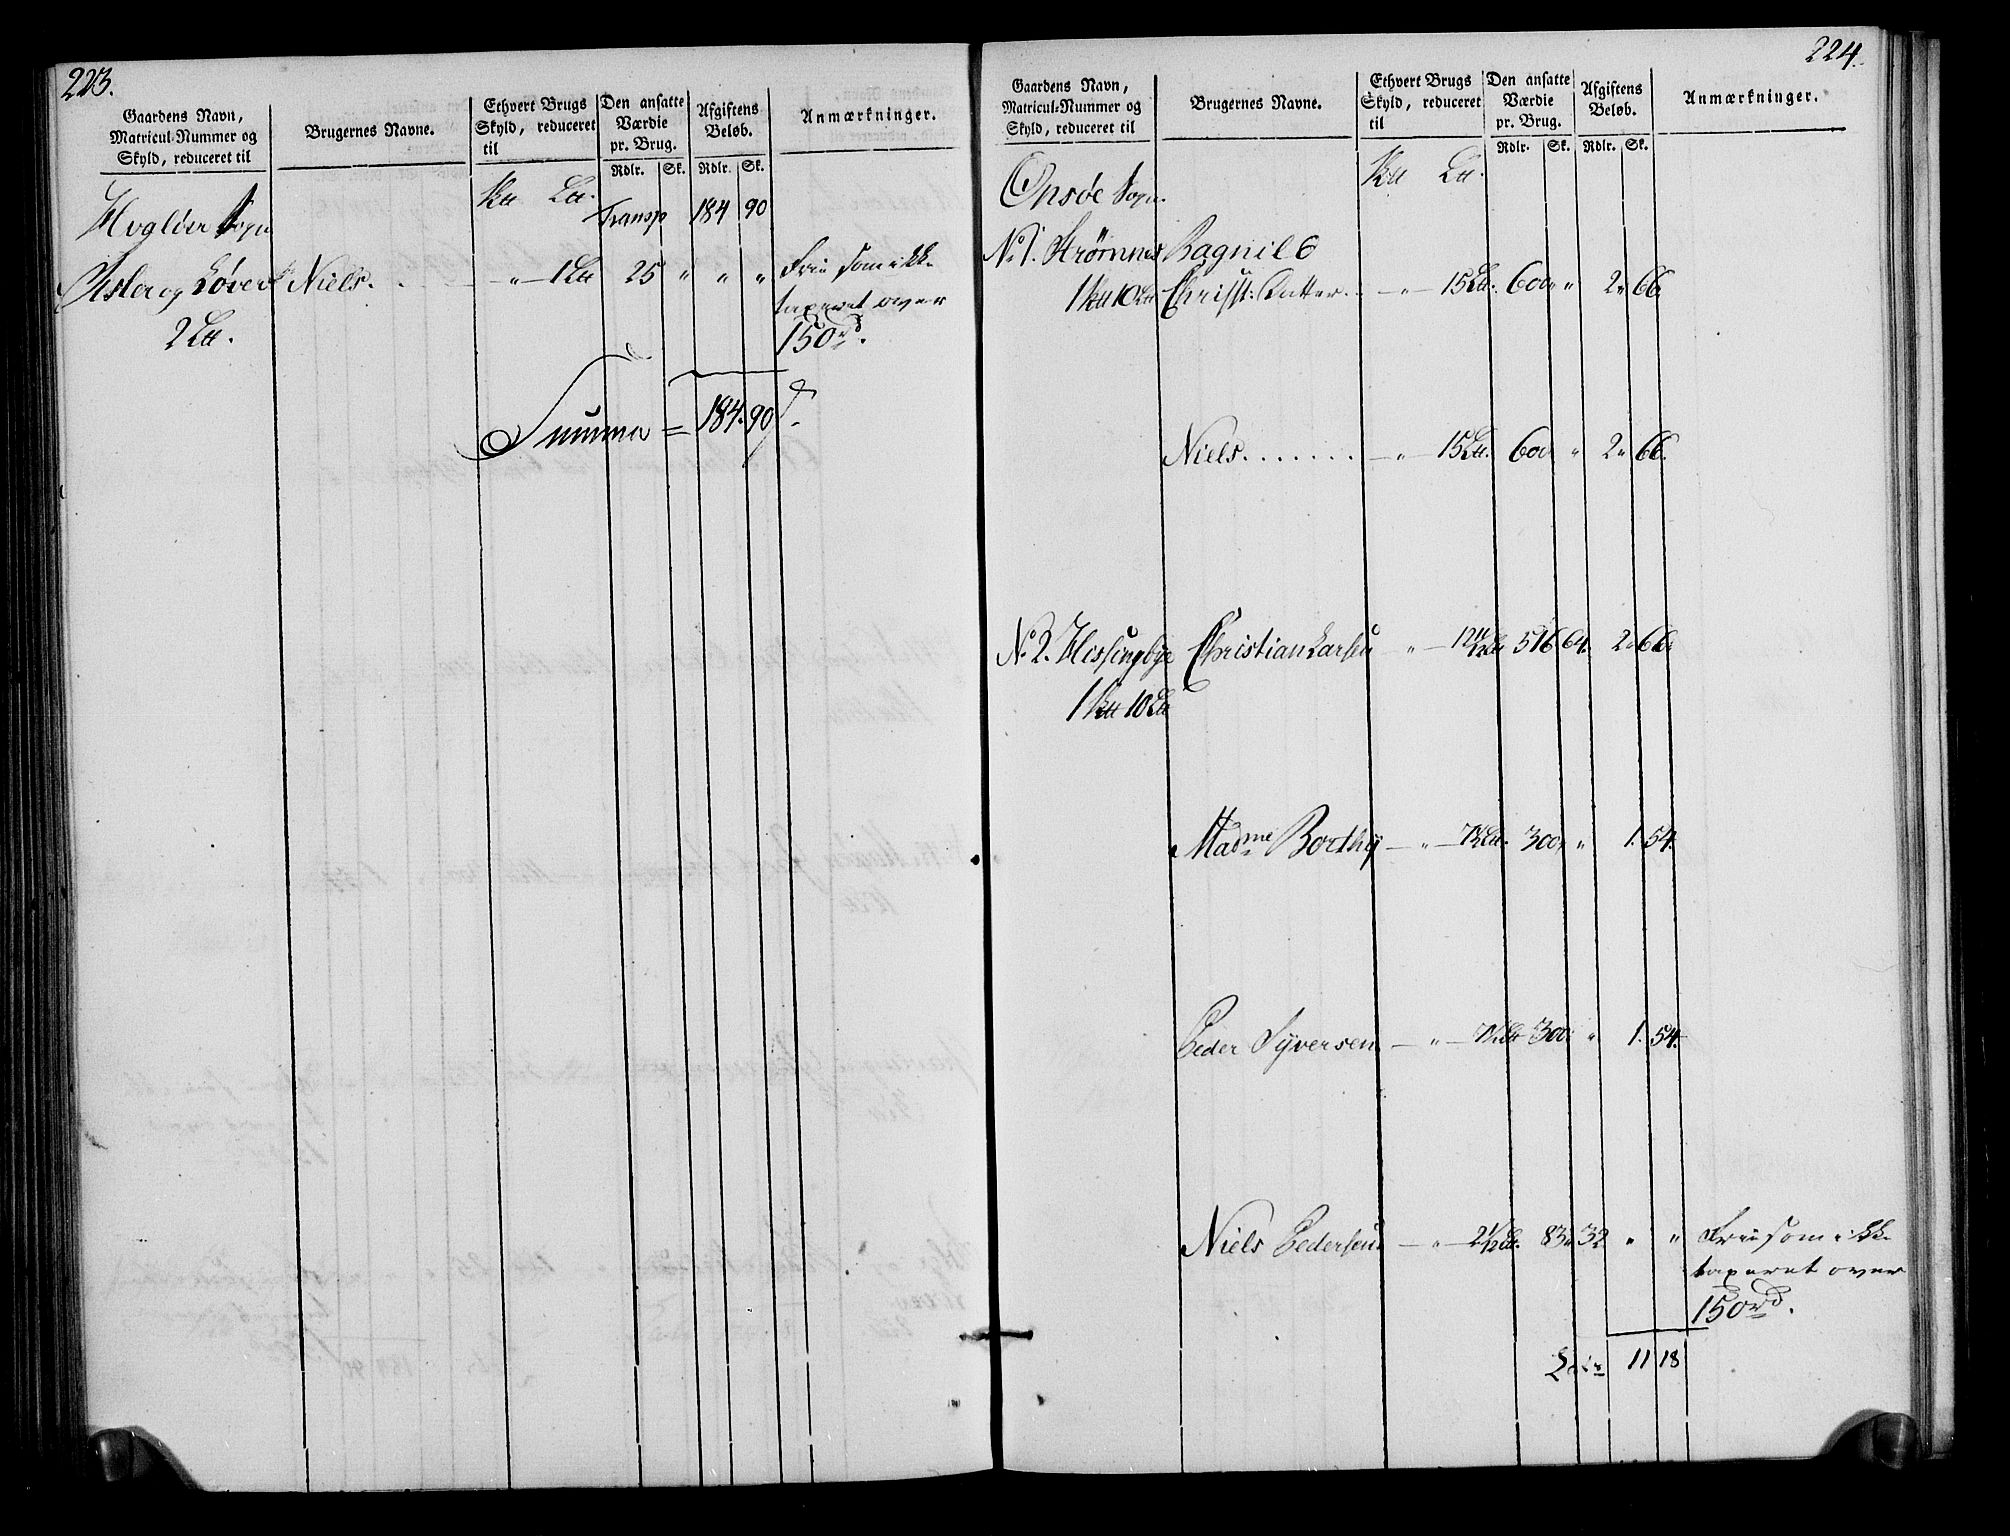 223.
Gaardens Navn,
Matricul-Nummer og
Skyld, reduceret til
Brugernes Navne.
Ethvert Brugs
Skyld, reduceret
til
Den ansatte
Værdie
pr. Brug.
Rdlr. Sk.
Afgiftens
Beløb.
Rdlr. Sk.
Anmærkninger.
Transp 184 90
Niels. " 1 25 " " " Frie som ikke
taxeret over
150rd.
2
Summa = 184. 90
224.
Gaardens Navn,
Matricul-Nummer og
Skyld, reduceret til
Brugernes Navne.
Ethvert Brugs
Skyld, reduceret
til
Den ansatte
Værdie
pr. Brug.
Rdlr. Sk.
Afgiftens
Beløb.
Rdlr. Sk.
Anmærkninger.
Onsøe Sogn.
No 1. Strømnes Ragnild
1 10 Christ: 15 600 " 2 66
Niels. 15 600 " 2 66.
No 2. Christian Larsen " 12 1/2 516 64. 2 66
1 10
Madme " 7 1/2 300 " 1. 54.
Peder Syversen " 7 1/2 300 " 1. 54.
Niels Pedersen " 2 1/2 83 32 " " Frie som ikke
taxeret over
150rd.
11 18